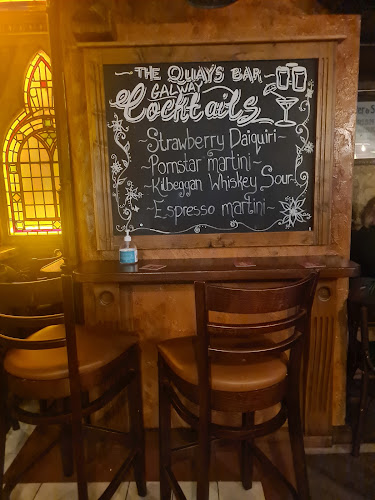 ~ THE QUAYS BAR ~
GALWAY
Cocktails
~Strawberry Daiquiri~
~Pornstar martini~
~Kilbeggan Whiskey Sour~
~Espresso martini~